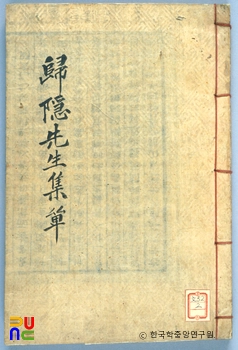 歸隱先生集單
© 한국학중앙연구원